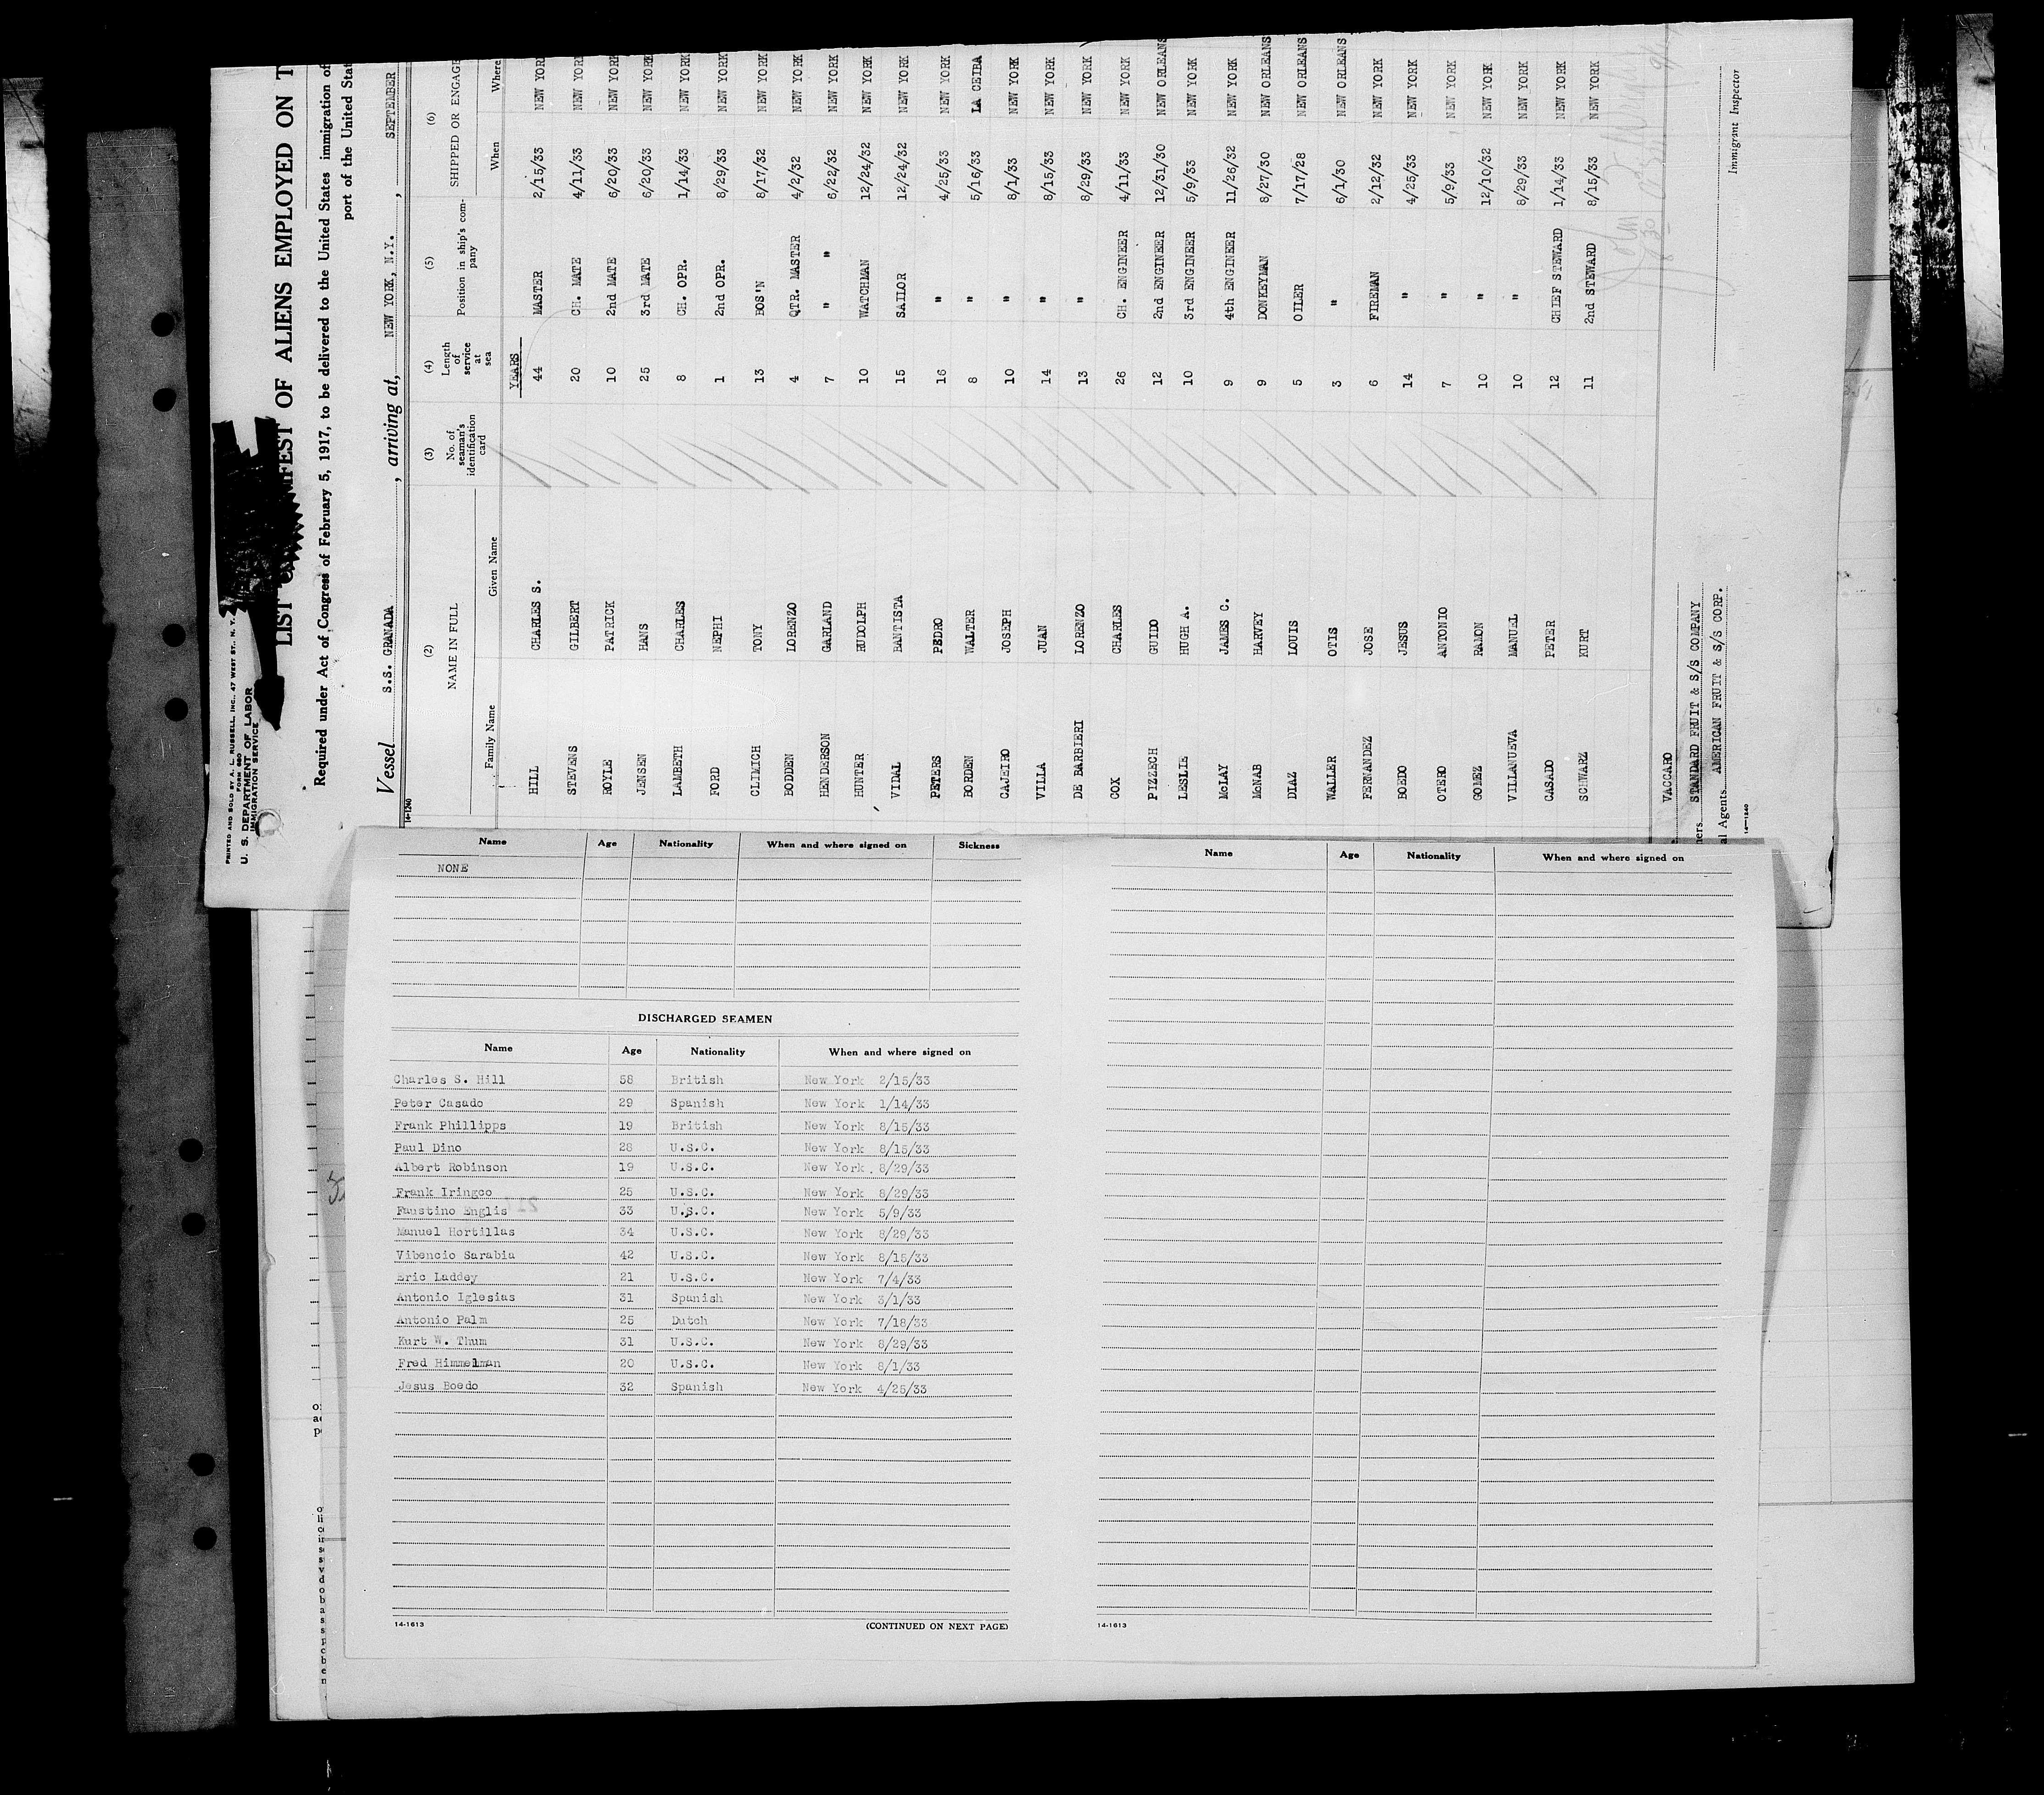 PRINTED AND SOLD BY A. L. RUSSELL, INC., 47 WEST ST., N. Y.
FORM 680
U. S. DEPARTMENT OF LABOR
IMMIGRATION SERVICE
LIST OF ALIENS EMPLOYED ON T
Required under Act of Congress of February 5, 1917, to be delivered to the United States immigration of
port of the United Stat
Vessel S.S. GRANADA, arriving at, NEW YORK, N.Y., SEPTEMBER
14-1240
(2) (3) (4) (5) (6)
NAME IN FULL No. of seaman's identification card Length of service at sea Position in ship's company SHIPPED OR ENGAGE
Family Name Given Name When Where
YEARS
HILL CHARLES S. 44 MASTER 2/15/33 NEW YORK
STEVENS GILBERT 20 CH. MATE 4/11/33 NEW YORK
ROYLE PATRICK 10 2nd MATE 6/20/33 NEW YORK
JENSEN HANS 25 3rd MATE 6/20/33 NEW YORK
LAMBETH CHARLES 8 CH. OPR. 1/14/33 NEW YORK
FORD NEPHI 1 2nd OPR. 8/29/33 NEW YORK
CLIMICH TONY 13 BOS'N 8/17/32 NEW YORK
BODDEN LORENZO 4 QTR. MASTER 4/2/32 NEW YORK
HENDERSON GARLAND 7 " " 6/22/32 NEW YORK
HUNTER RUDOLPH 10 WATCHMAN 12/24/32 NEW YORK
VIDAL BANTISTA 15 SAILOR 12/24/32 NEW YORK
PETERS PEDRO 16 " 4/25/33 NEW YORK
BORDEN WALTER 8 " 5/16/33 LA CEIBA
CAJEIRO JOSEPH 10 " 8/1/33 NEW YORK
VILLA JUAN 14 " 8/15/33 NEW YORK
DE BARBIERI LORENZO 13 " 8/29/33 NEW YORK
COX CHARLES 26 CH. ENGINEER 4/11/33 NEW YORK
PIZZECH GUIDO 12 2nd ENGINEER 12/31/30 NEW ORLEANS
LESLIE HUGH A. 10 3rd ENGINEER 5/9/33 NEW YORK
McLAY JAMES C. 9 4th ENGINEER 11/26/32 NEW YORK
McNAB HARVEY 9 DONKEYMAN 8/27/30 NEW ORLEANS
DIAZ LOUIS 5 OILER 7/17/28 NEW ORLEANS
WALLER OTIS 3 " 6/1/30 NEW ORLEANS
FERNANDEZ JOSE 6 FIREMAN 2/12/32 NEW YORK
BOEDO JESUS 14 " 4/25/33 NEW YORK
OTERO ANTONIO 7 " 5/9/33 NEW YORK
GOMEZ RAMON 10 " 12/10/32 NEW YORK
VILANUEVA MANUEL 10 " 8/29/33 NEW YORK
CASADO PETER 12 CHIEF STEWARD 1/14/33 NEW YORK
SCHWARZ KURT 11 2nd STEWARD 8/15/33 NEW YORK
VACCARO
ners STANDARD FRUIT & S/S COMPANY
al Agents AMERICAN FRUIT & S/S CORP.
Immigrant Inspector
14-1240
Name Age Nationality When and where signed on Sickness
NONE
DISCHARGED SEAMEN
Name Age Nationality When and where signed on
Charles S. Hill 58 British New York 2/15/33
Peter Casado 29 Spanish New York 1/14/33
Frank Phillipps 19 British New York 8/15/33
Paul Dino 28 U.S.C. New York 8/15/33
Albert Robinson 19 U.S.C. New York 8/29/33
Frank Iringco 25 U.S.C. New York 8/29/33
Faustino Englis 33 U.S.C. New York 5/9/33
Manuel Hortillas 34 U.S.C. New York 8/29/33
Vibencio Sarabia 42 U.S.C. New York 8/15/33
Eric Laddey 21 U.S.C. New York 7/4/33
Antonio Iglesias 31 Spanish New York 3/1/33
Antonio Palm 25 Dutch New York 7/18/33
Kurt W. Thum 31 U.S.C. New York 8/29/33
Fred Himmelman 20 U.S.C. New York 8/1/33
Jesus Boedo 32 Spanish New York 4/25/33
14-1613 (CONTINUED ON NEXT PAGE)
Name Age Nationality When and where signed on
14-1613